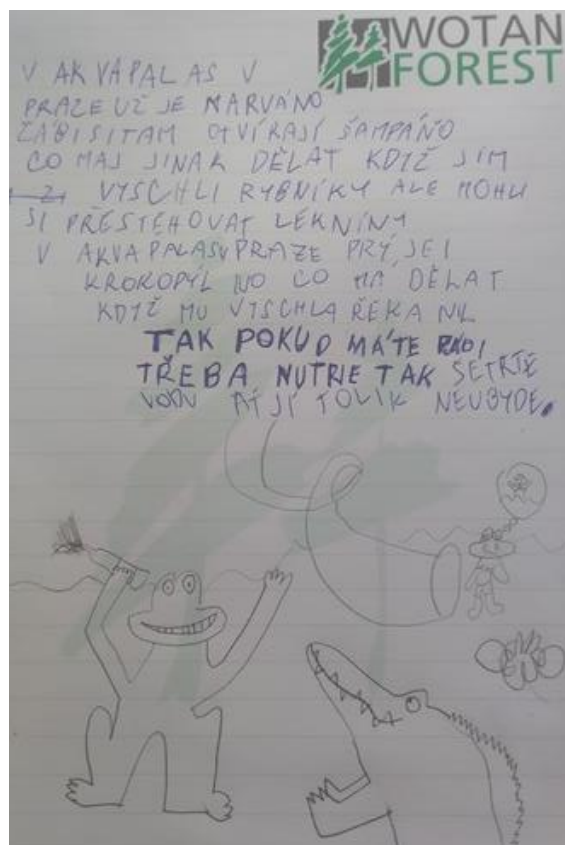 WOTAN
FOREST
V AKVAPALAS V
PRAZE UŽ JE NARVÁNO
ŽÁBISITAM OTVÍRAJÍ ŠAMPÁŇO
CO MAJ JINAK DĚLAT KDYŽ JIM
VYSCHLI RYBNÍKY ALE MOHU
SI PŘESTĚHOVAT LEKNÍNY
V AKVAPALASVPRAZE PRÝ JE I
KROKOPÝL NO CO MÁ DĚLAT
KDYŽ MU VYSCHLA ŘEKA NIL
TAK POKUD MÁTE RÁDI
TŘEBA NUTRIE TAK ŠETŘTE
VODU AŤ JÍ TOLIK NEUBYDE.